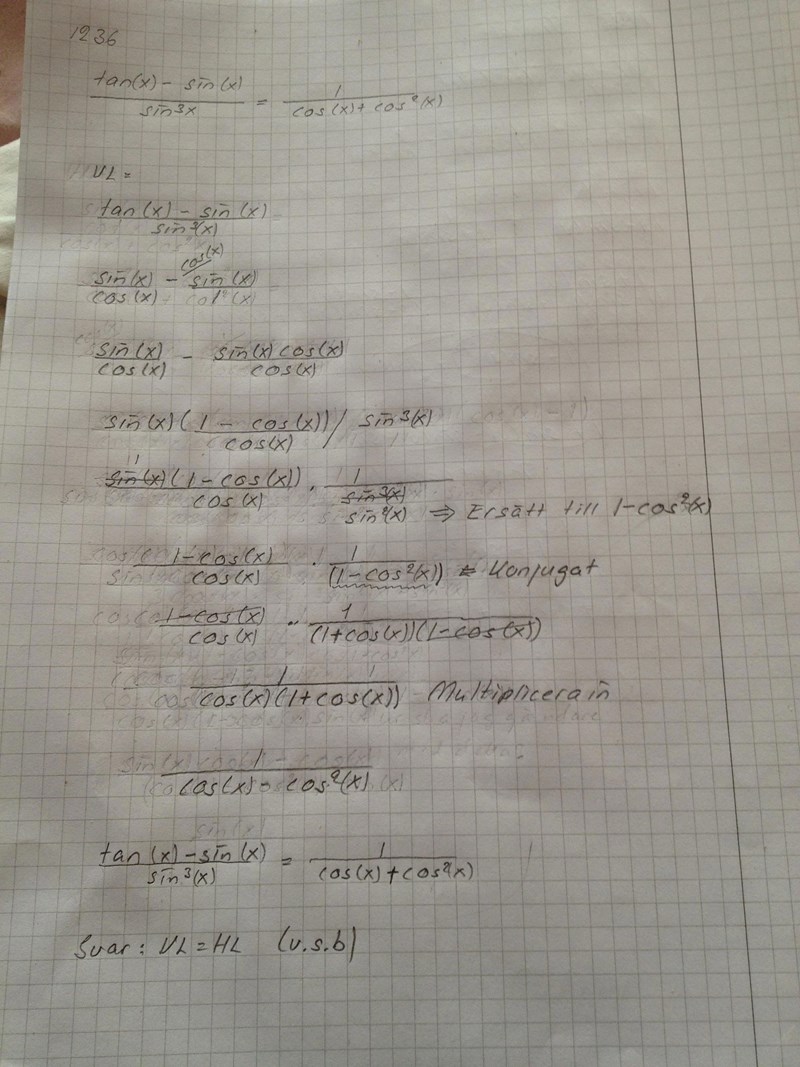 1236
tan(x) - sin(x) / sin³x = 1 / cos(x) + cos²(x)
VL =
tan(x) - sin(x) / sin³(x)
sin(x) / cos(x) - cos(x) sin(x) / 1
sin(x) / cos(x) - sin(x) cos(x) / cos(x)
sin(x) (1 - cos(x)) / cos(x) / sin³(x)
sin(x) (1 - cos(x)) / cos(x) · 1 / sin³(x) sin²(x) ⇒ Ersätt till 1-cos²(x)
1-cos(x) / cos(x) · 1 / (1-cos²(x)) ⇐ Konjugat
1-cos(x) / cos(x) · 1 / (1+cos(x))(1-cos(x))
1 / cos(x)(1+cos(x)) Multiplicera in
1 / cos(x) - cos²(x)
tan(x) - sin(x) / sin³(x) = 1 / cos(x) + cos²(x)
Svar: VL = HL (v.s.b)